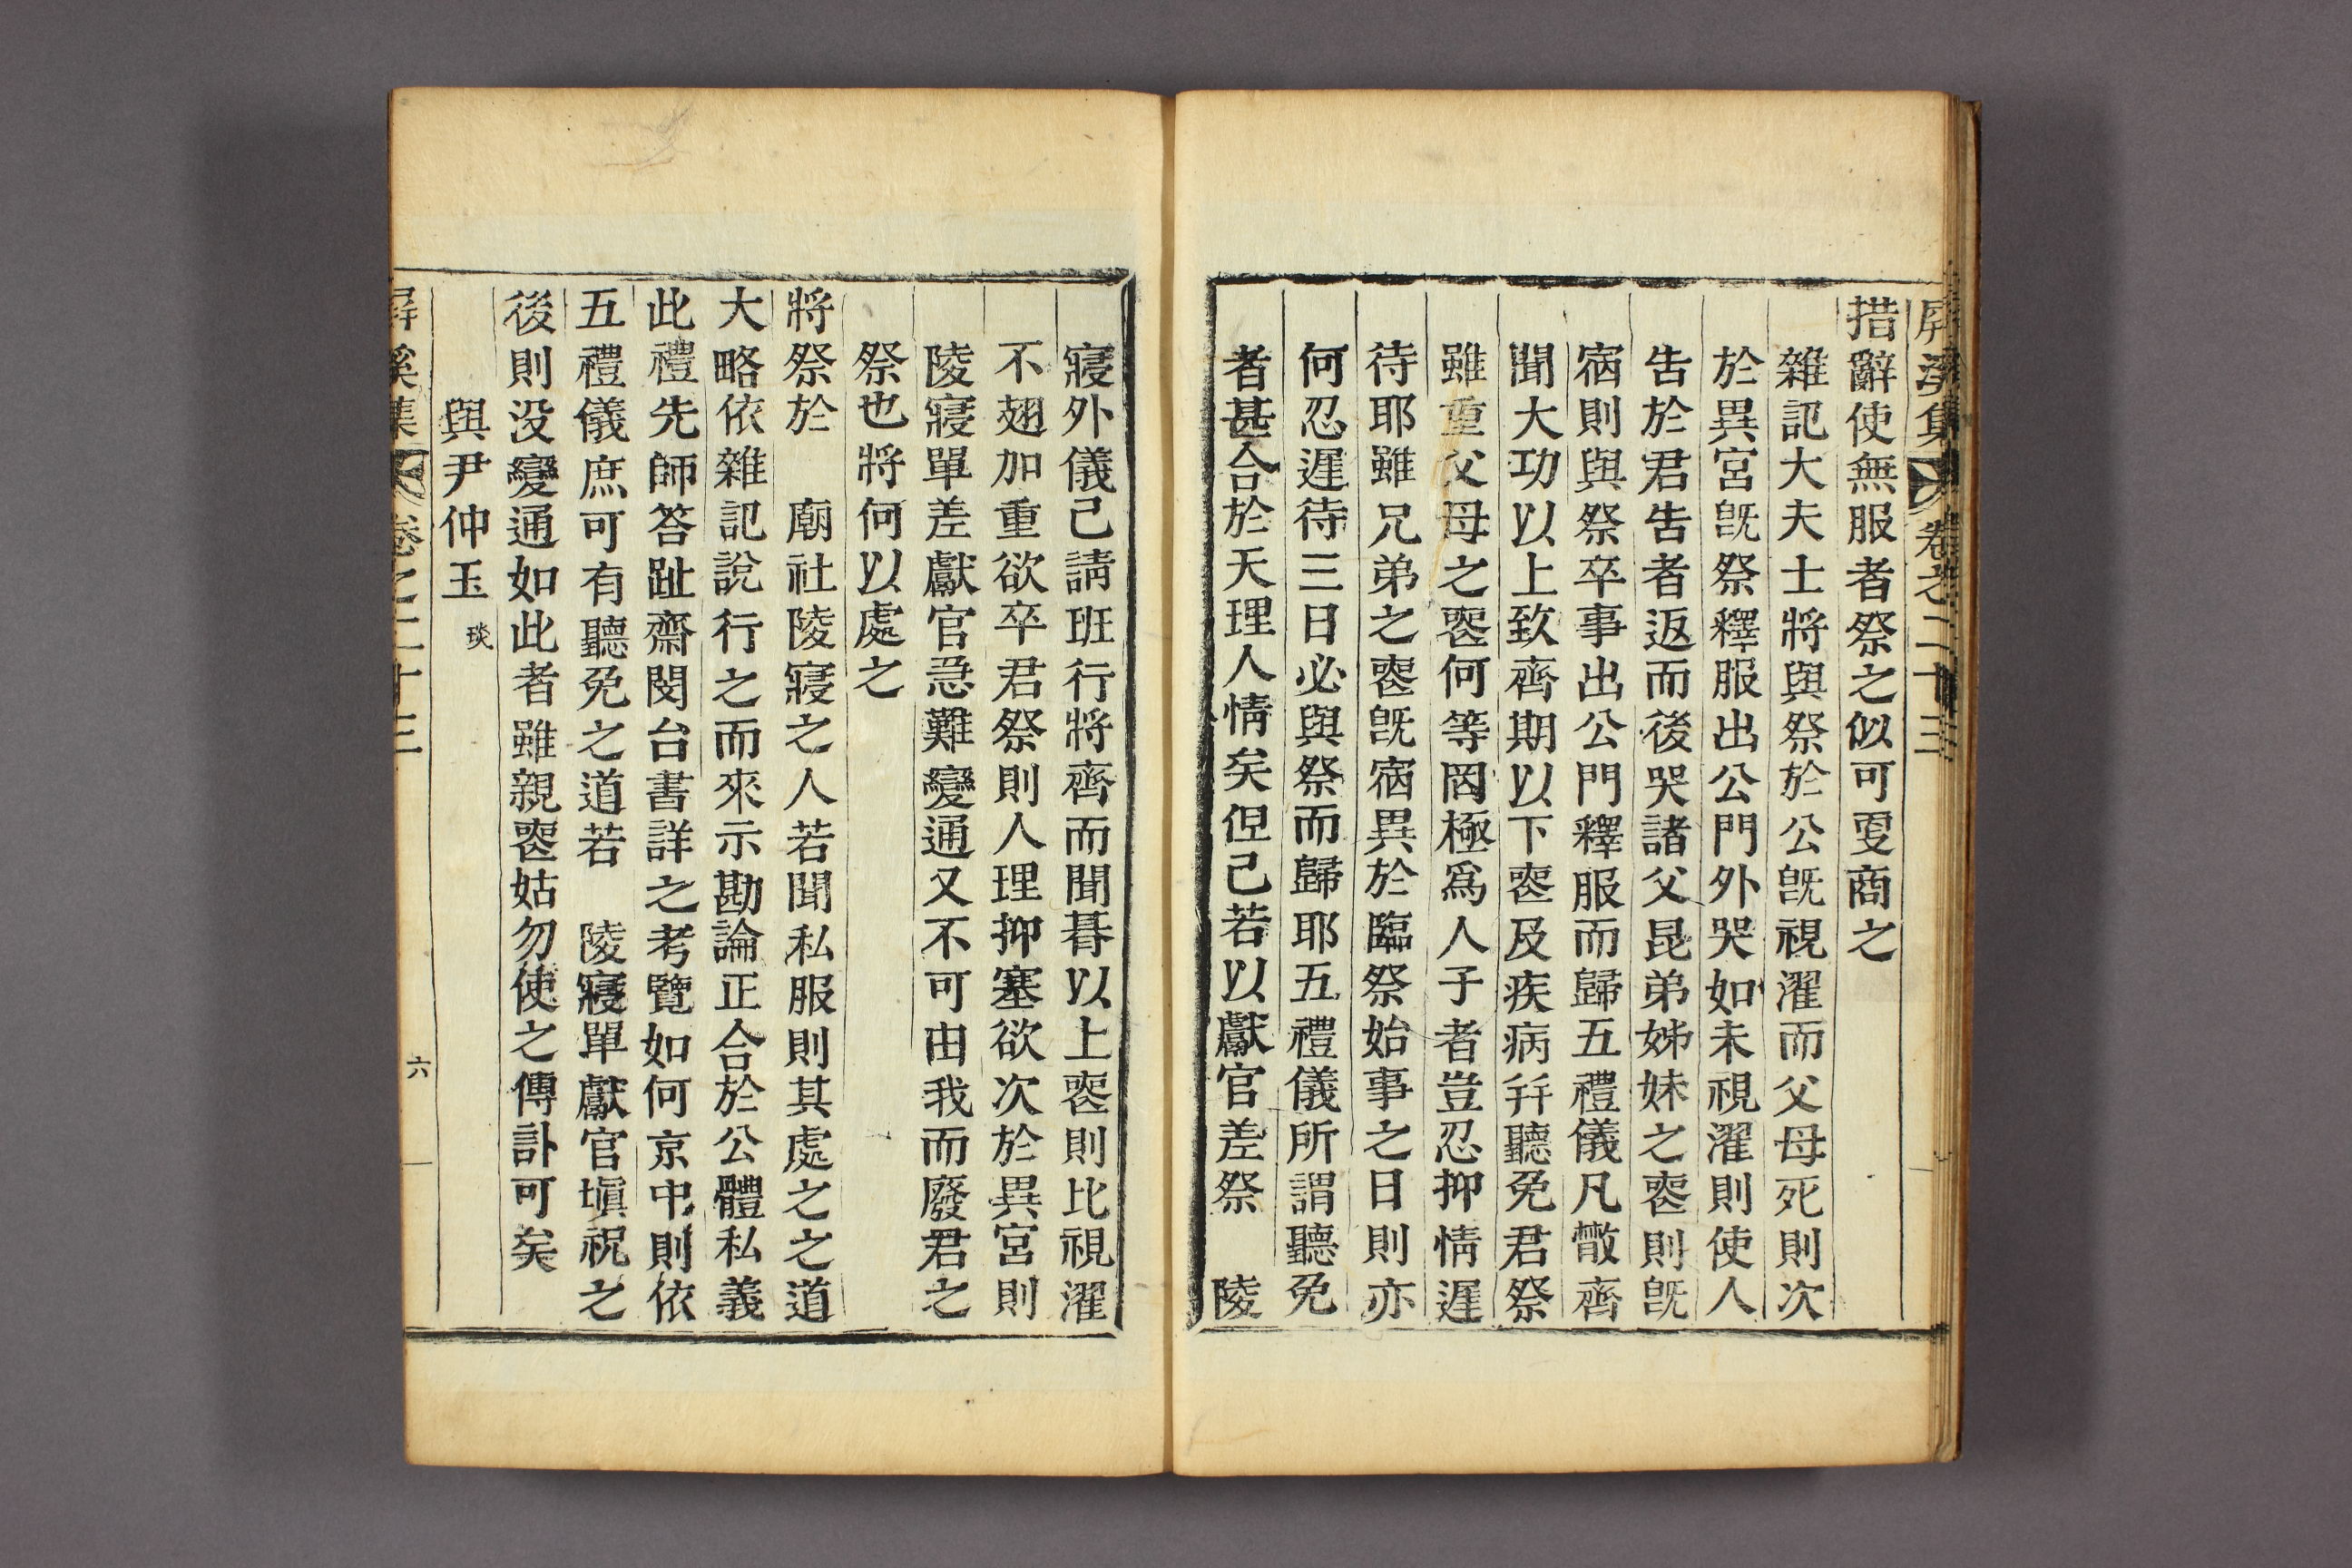 屛溪集 卷之二十三
措辭使無服者祭之似可更商之
雜記大夫士將與祭於公旣視濯而父母死則次
於異宮旣祭釋服出公門外哭如未視濯則使人
告於君告者返而後哭諸父昆弟姊妹之喪則旣
宿則與祭卒事出公門釋服而歸五禮儀凡散齊
聞大功以上致齊期以下喪及疾病幷聽免君祭
雖重父母之喪何等罔極爲人子者豈忍抑情遲
待耶雖兄弟之喪旣宿異於臨祭始事之日則亦
何忍遲待三日必與祭而歸耶五禮儀所謂聽免
者甚合於天理人情矣但己若以獻官差祭 陵
寢外儀已請班行將齊而聞朞以上喪則比視濯
不翅加重欲卒君祭則人理抑塞欲次於異宮則
陵寢單差獻官急難變通又不可由我而廢君之
祭也將何以處之
將祭於 廟社陵寢之人若聞私服則其處之之道
大略依雜記說行之而來示勘論正合於公體私義
此禮先師答趾齋閔台書詳之考覽如何京中則依
五禮儀庶可有聽免之道若 陵寢單獻官塡祝之
後則没變通如此者雖親喪姑勿使之傳訃可矣
與尹仲玉 琰
屛溪集 卷之二十三 六